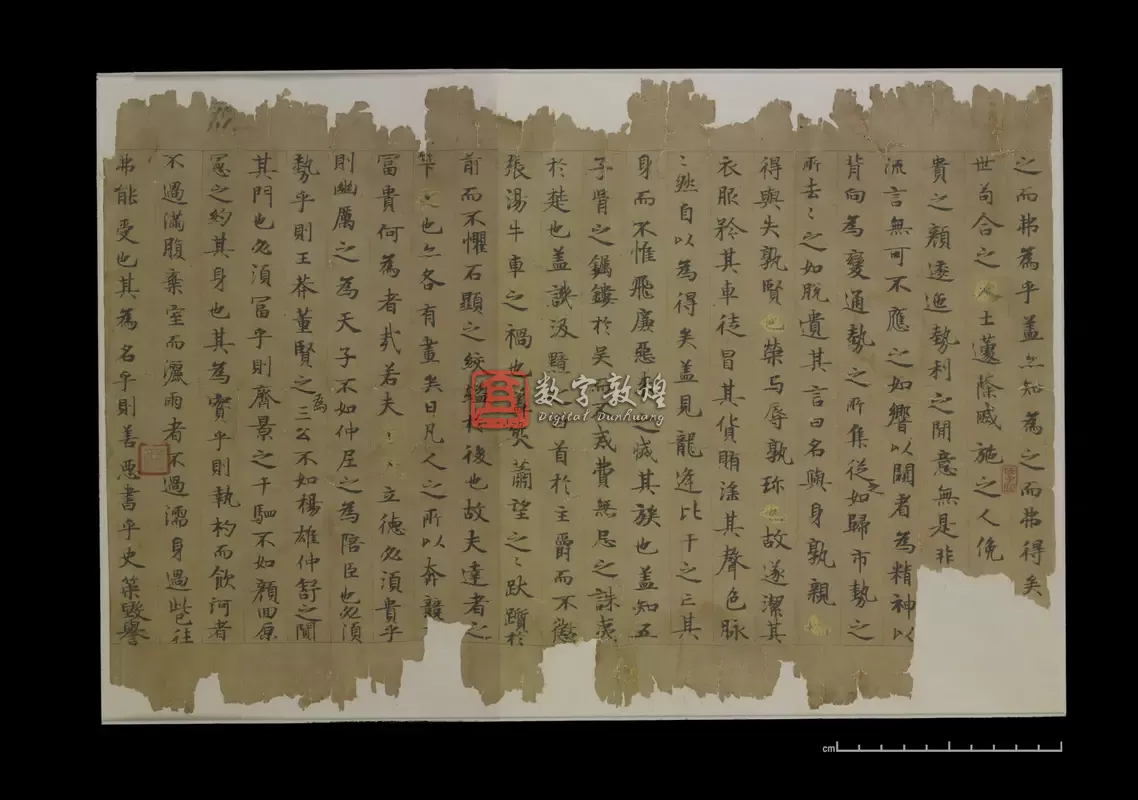 之而弗為乎盖亦知為之而弗得矣
世苟合之士蘧蒢戚施之人俛
貴之顏逶迤勢利之間意無是非
流言無可不應之如響以闚者為精神以
背向為變通勢之所集從之如歸市勢之
所去〻之如脫遺其言曰名與身孰親也
得與失孰賢也榮与辱孰珎也故遂潔其
衣服矜其車徒冒其貨賄淫其聲色脉
〻然自以為得矣盖見龍逢比干之亡其
身而不惟飛廉惡来之滅其族也盖知五
子胥之鐲鏤於吳而不戒費無忌之誅夷
於楚也盖譏汲黯之白首於主爵而不懲
張湯牛車之禍也盖笑蕭望之〻跋躓於
前而不懼石顯之絞縊於後也故夫達者之
筭也亦各有盡矣曰凡人之所以奔競
富貴何為者哉若夫立德必須貴乎
則幽厲之為天子不如仲尼之為陪臣也必須
勢乎則王莽董賢之為三公不如楊雄仲舒之闃
其門也必須冨乎則齊景之千駟不如顏回原
憲之約其身也其為實乎則執杓而飲河者
不過滿腹棄室而灑雨者不過濡身過此已往
弗能受也其為名乎則善惡書乎史筞毀譽
数字敦煌
Digital Dunhuang
cm